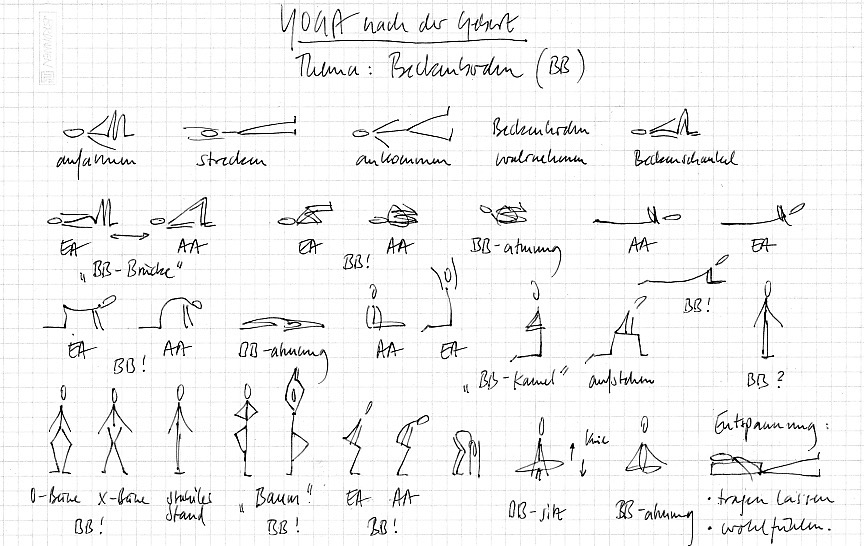 YOGA nach der Geburt
Thema: Beckenboden (BB)
aufwärmen strecken ankommen Beckenboden wahrnehmen Beckenschaukel
EA ↔ AA EA AA BB-atmung AA EA
"BB-Brücke" BB! BB!
EA AA BB-atmung AA EA "BB-Kamel" aufstehen BB?
BB!
O-Beine X-Beine stabiler Stand "Baum" EA AA BB-sitz Knie BB-atmung
BB! BB! BB!
Entspannung:
• tragen lassen
• wohlfühlen.